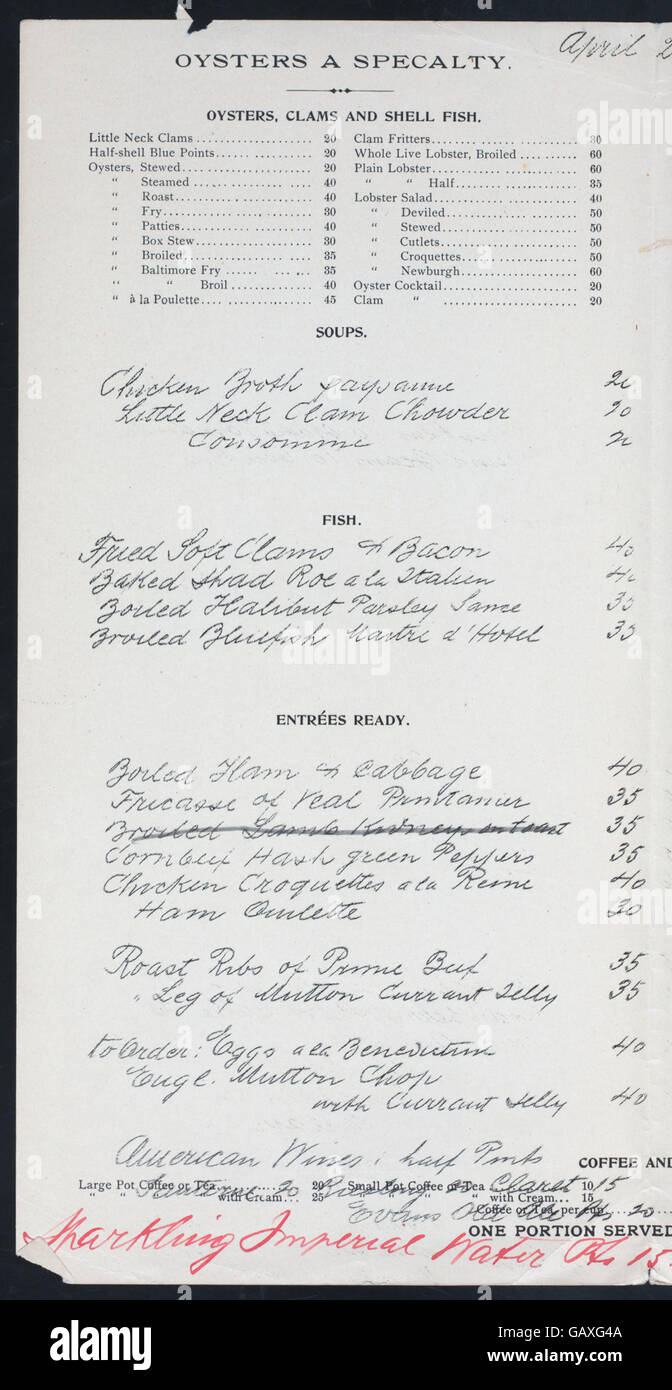 April 2
OYSTERS A SPECIALTY.
OYSTERS, CLAMS AND SHELL FISH.
Little Neck Clams 20
Half-shell Blue Points 20
Oysters, Stewed 20
" Steamed 40
" Roast 40
" Fry 30
" Patties 40
" Box Stew 30
" Broiled 35
" Baltimore Fry 35
" " Broil 40
" à la Poulette 45
Clam Fritters 30
Whole Live Lobster, Broiled 60
Plain Lobster 60
" " Half 35
Lobster Salad 40
" Deviled 50
" Stewed 50
" Cutlets 50
" Croquettes 50
" Newburgh 60
Oyster Cocktail 20
Clam " 20
SOUPS.
Chicken Broth paysanne 20
Little Neck Clam Chowder 20
Consomme 20
FISH.
Fried Soft Clams & Bacon 40
Baked Shad Roe a la Italien 40
Boiled Halibut Parsley Sauce 35
Broiled Bluefish Maitre d'Hotel 35
ENTRÉES READY.
Boiled Ham & Cabbage 40
Fricasse of Veal Printanier 35
Broiled Lamb Kidneys on toast 35
Cornbeef Hash green Peppers 35
Chicken Croquettes a la Reine 40
Ham Omlette 30
Roast Ribs of Prime Beef 35
" Leg of Mutton Currant Jelly 35
to Order: Eggs a la Benedictine 40
Engl. Mutton Chop
with Currant Jelly 40
American Wines: half Pints
COFFEE AND
Large Pot Coffee or Tea 20 Small Pot Coffee or Tea 10
" " with Cream 25 " " with Cream 15
Sauterne 20 Claret 15
Coffee or Tea, per cup
Evans 20
ONE PORTION SERVED
Sparkling Imperial Water Pts 15
alamy
Image ID: GAXG4A
www.alamy.com